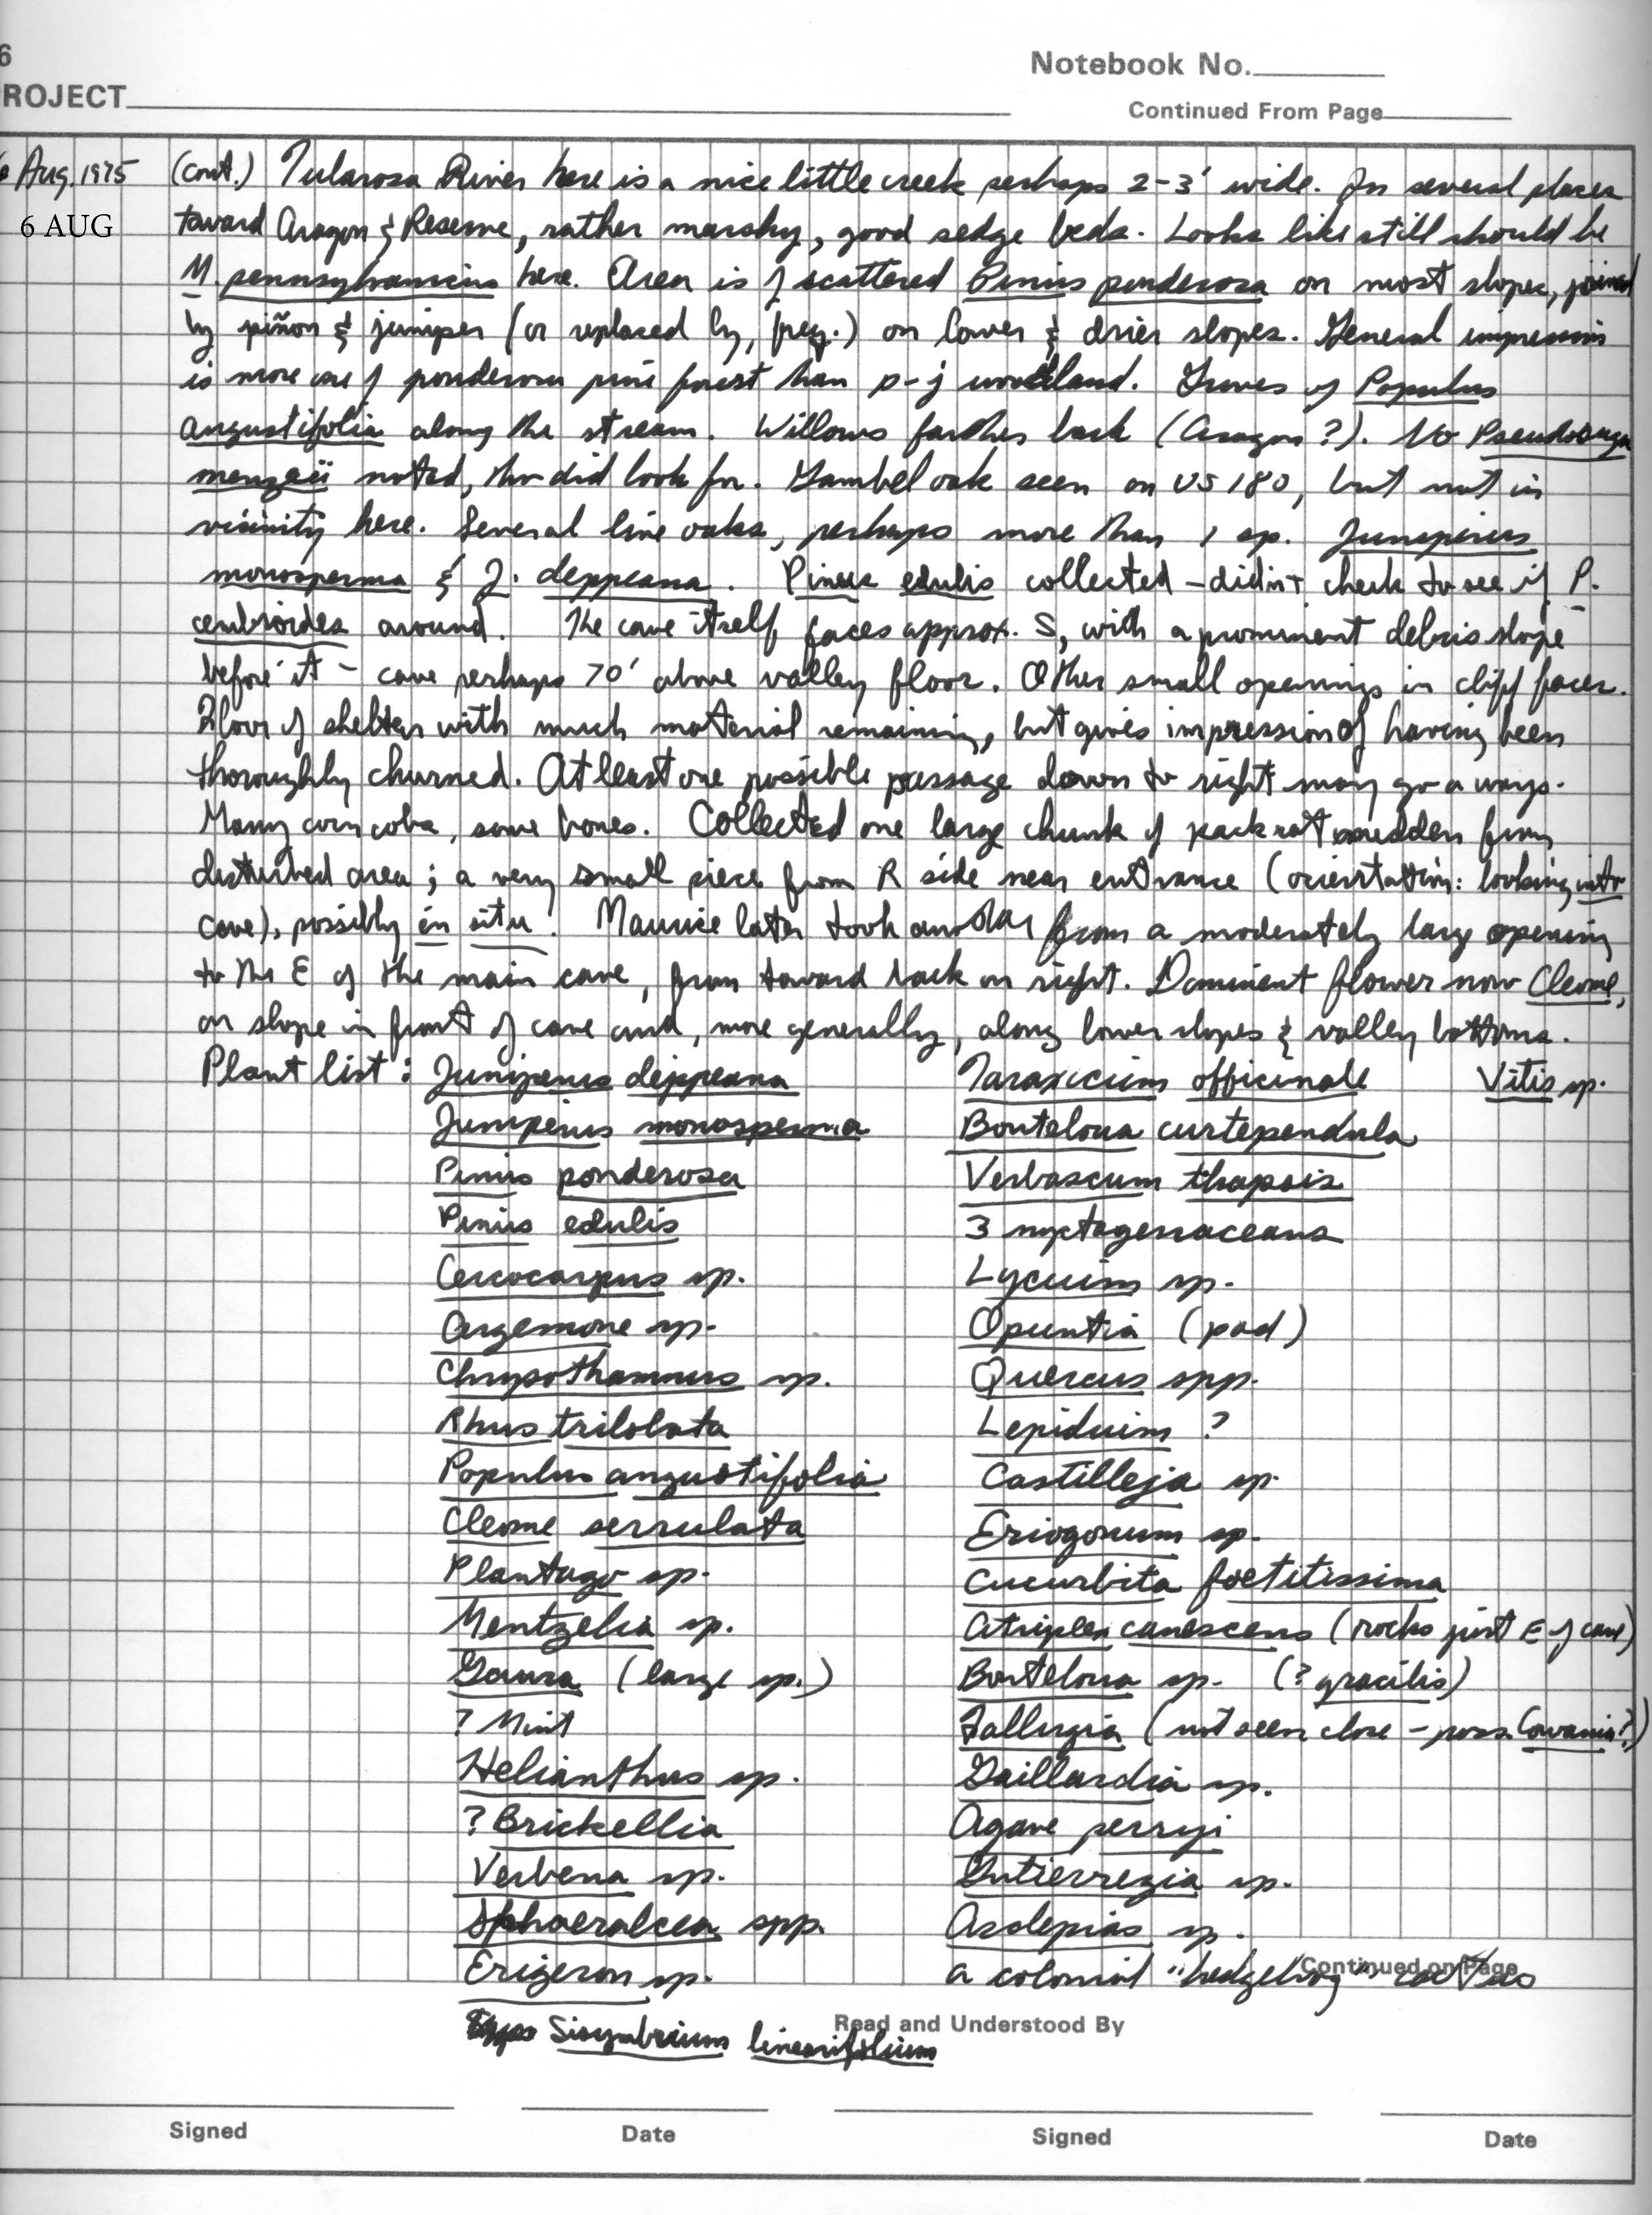 6
Notebook No.
ROJECT
Continued From Page
6 Aug. 1975 (cont.) Tularosa River here is a nice little creek perhaps 2-3' wide. In several places
6 AUG
toward Aragon & Reserve, rather marshy, good sedge beds. Looks like still should be
M. pennsylvanicus here. Area is of scattered Pinus ponderosa on most slopes, joined
by piñon & juniper (or replaced by, freq.) on lower & drier slopes. General impression
is more one of ponderosa pine forest than p-j woodland. Groves of Populus
angustifolia along the stream. Willows farther back (Aragon?). No Pseudosuga
menzeii noted, tho did look for. Gambel oak seen on US 180, but not in
vicinity here. Several live oaks, perhaps more than 1 sp. Juniperus
monosperma & J. deppeana. Pinus edulis collected - didn't check to see if P.
cembroides around. The cave itself faces approx. S, with a prominent debris slope
before it - cave perhaps 70' above valley floor. Other small openings in cliff faces.
Floor of shelter with much material remaining, but gives impression of having been
thoroughly churned. At least one possible passage down to right may go a ways.
Many corn cobs, some bones. Collected one large chunk of packrat midden from
disturbed area; a very small piece from R side near entrance (orientation: looking into
cave), possibly in situ. Maurice later took another from a moderately large opening
to the E of the main cave, from toward back on right. Dominent flower now Cleome,
on slope in front of cave and, more generally, along lower slopes & valley bottoms.
Plant list: Juniperus deppeana Taraxicium officinale Vitis sp.
Juniperus monosperma Bouteloua curtependula
Pinus ponderosa Verbascum thapsis
Pinus edulis 3 nyctagenaceans
Cercocarpus sp. Lycium sp.
Argemone sp. Opuntia (pad)
Chrysothamnus sp. Quercus spp.
Rhus trilobata Lepidium ?
Populus angustifolia Castilleja sp.
Cleome serrulata Eriogonum sp.
Plantago sp. Cucurbita foetitissima
Mentzelia sp. Atriplex canescens (rocks just E of cave)
Gaura (large sp.) Bouteloua sp. (? gracilis)
? Mint Fallugia (not seen close - poss. Cowania?)
Helianthus sp. Gaillardia sp.
? Brickellia Agave perryi
Verbena sp. Gutierrezia sp.
Sphaeralcea spp. Asclepias sp.
Erigeron sp. a colonial "hedgehog" cactus
Continued on Page
Sisymbrium linearifolium
Read and Understood By
Signed Date Signed Date